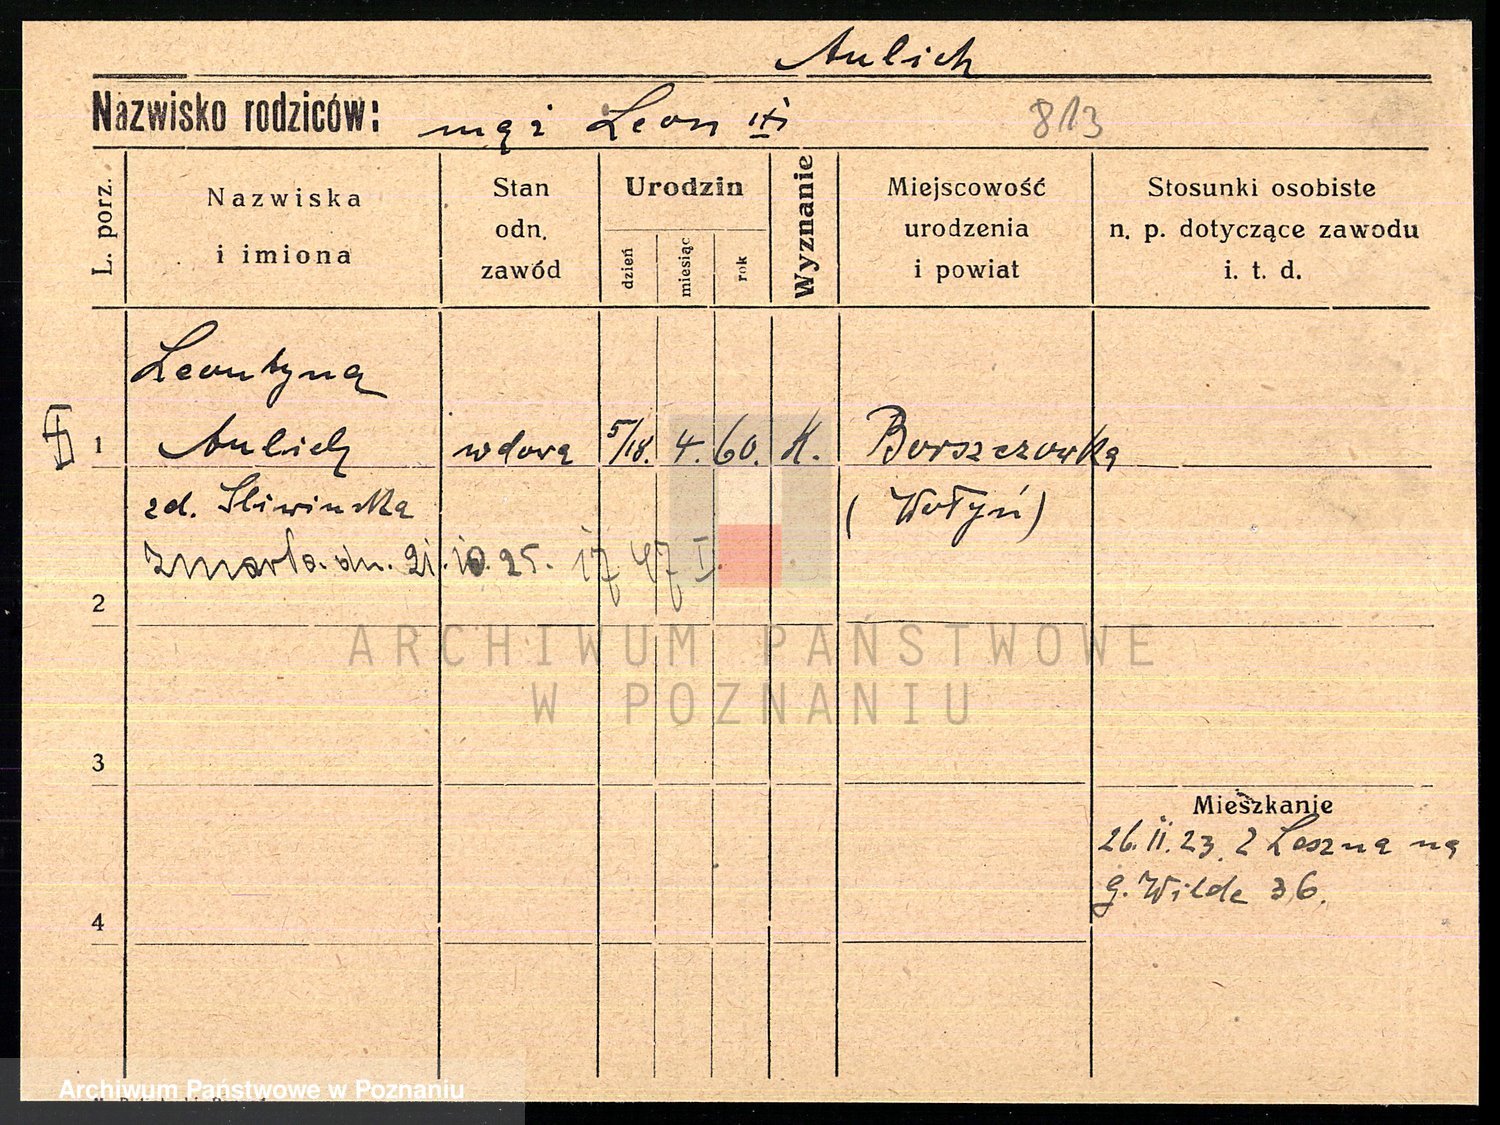 Aulich
Nazwisko rodziców: mąż Leon 813
L. porz.
Nazwiska
i imiona
Stan
odn.
zawód
Urodzin
dzień
miesiąc
rok
Wyznanie
Miejscowość
urodzenia
i powiat
Stosunki osobiste
n. p. dotyczące zawodu
i. t. d.
Leontyna
1 Aulich wdowa 5/18. 4. 60. K. Borszczowka
zd. Śliwinska (Wołyń)
zmarła. dn. 21. 10. 25. 17 47 I.
2
ARCHIWUM PAŃSTWOWE
W POZNANIU
3
Mieszkanie
26. II. 23. Z Leszna na
g. Wilde 36.
4
Archiwum Państwowe w Poznaniu